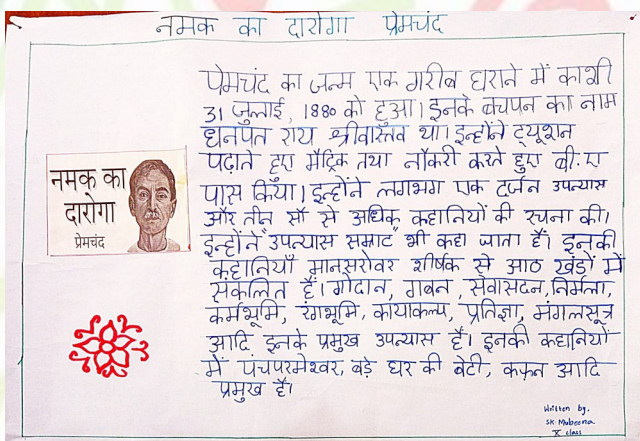 नमक का दारोगा प्रेमचंद
प्रेमचंद का जन्म एक गरीब घराने में काशी
31 जुलाई, 1880 को हुआ। इनके बचपन का नाम
धनपत राय श्रीवास्तव था। इन्होंने ट्यूशन
पढ़ाते हुए मैट्रिक तथा नौकरी करते हुए बी.ए
पास किया। इन्होंने लगभग एक दर्जन उपन्यास
और तीन सौ से अधिक कहानियों की रचना की।
इन्होंने "उपन्यास सम्राट" भी कहा जाता हैं। इनकी
कहानियाँ मानसरोवर शीर्षक से आठ खंडों में
संकलित हैं। गोदान, गबन, सेवासदन, निर्मला,
कर्मभूमि, रंगभूमि, कायाकल्प, प्रतिज्ञा, मंगलसूत्र
आदि इनके प्रमुख उपन्यास हैं। इनकी कहानियों
में पंचपरमेश्वर, बड़े घर की बेटी, कफ़न आदि
प्रमुख हैं।
नमक का
दारोगा
प्रेमचंद
Written by,
SK. Mubeena
X class